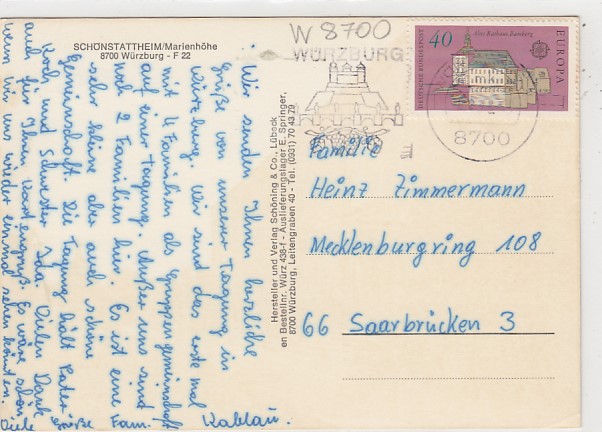 SCHÖNSTATTHEIM/Marienhöhe
8700 Würzburg - F 22
W 8700
WÜRZBURG
40
Altes Rathaus Bamberg
EUROPA
DEUTSCHE BUNDESPOST
8700
Wir senden Ihnen herzliche
Grüße von unserer Tagung in
Würzburg. Wir sind das erste mal
mit 4 Familien als Gruppengemeinschaft
auf einer Tagung. Außer uns sind
noch 2 Familien hier. Es ist eine
sehr kleine aber auch schöne
Gemeinschaft. Die Tagung hält Pater
Koch und Schwester Ida. Vielen Dank
auch für Ihren Kartengruß. Es wäre schön
wenn wir uns wieder einmal sehen könnten.
Viele Grüße Fam. Kablau.
Hersteller und Verlag Schöning & Co., Lübeck
en Bestellnr. Würz 438-f - Auslieferungslager E. Springer,
8700 Würzburg, Leitengraben 40 - Tel. (0931) 70 43 79
Familie
Heinz Zimmermann
Mecklenburgring 108
66 Saarbrücken 3